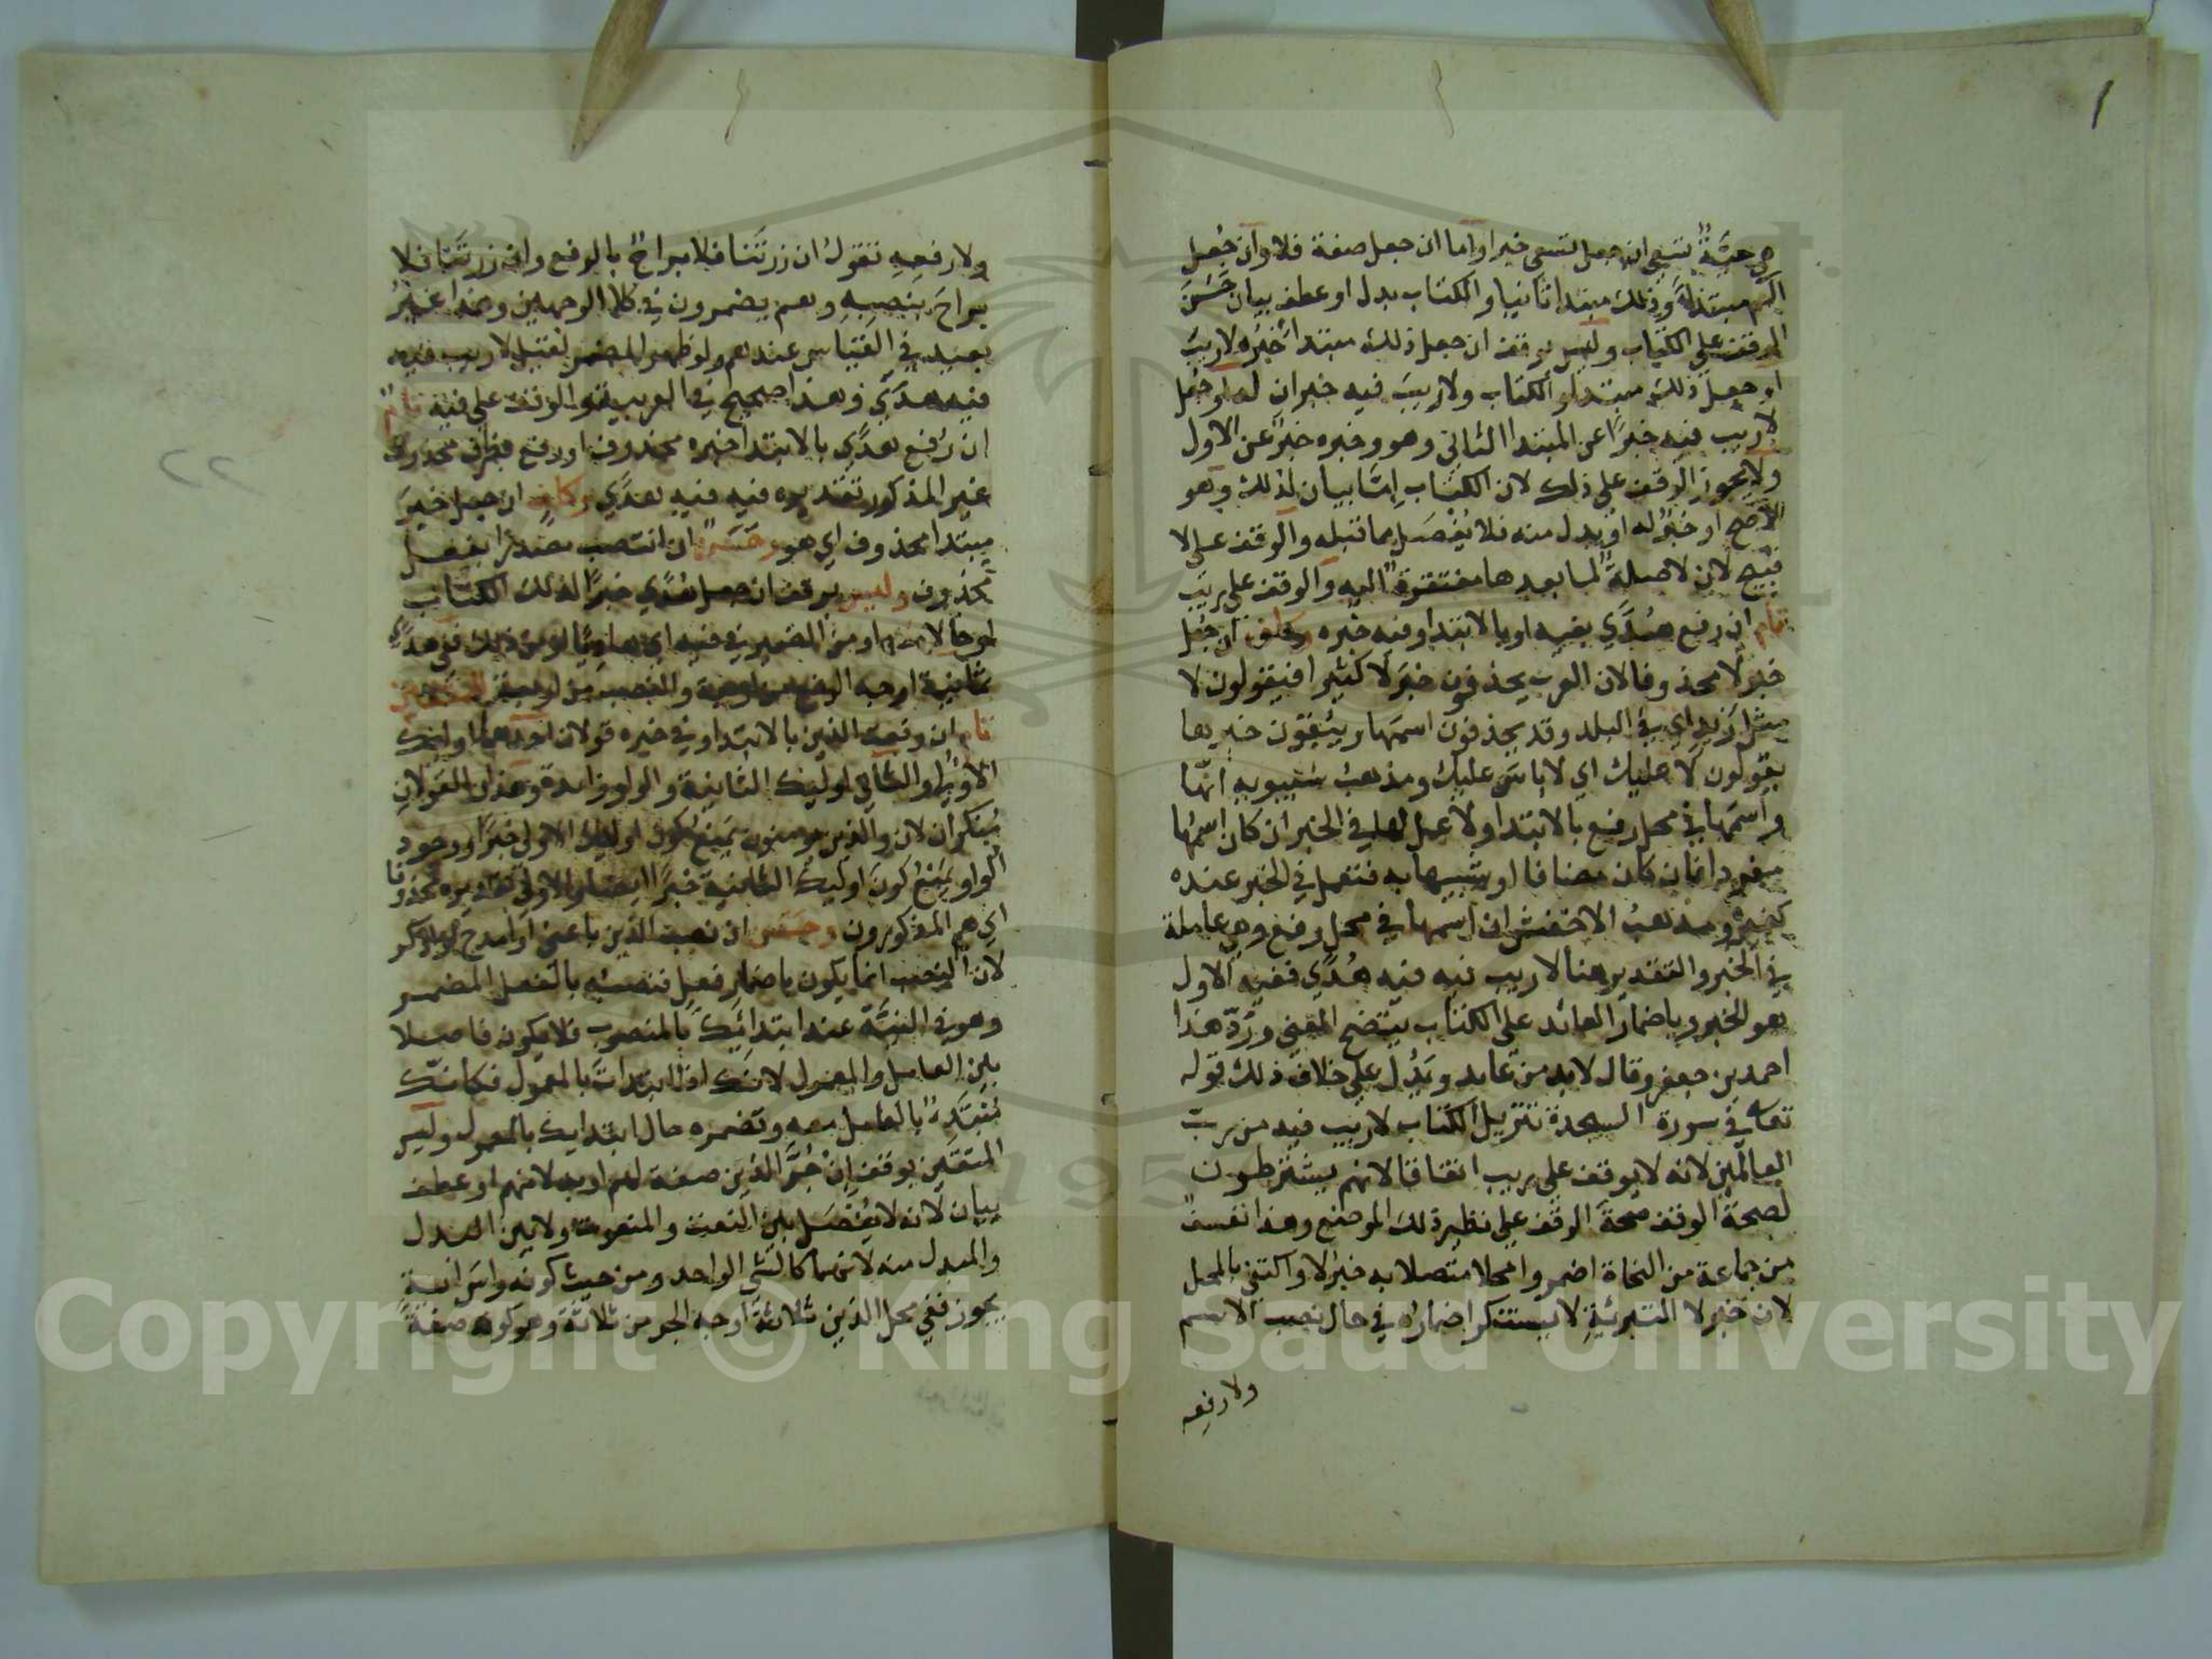 هي حيّةٌ تسعى ان جعل تسعى خبرا واما ان جعل صفة فلا وان جُعل
الم مبتدأ وذلك مبتدا ثانيا والكتاب بدل او عطف بيان حَسُنَ
الوقف على الكتاب وليس بوقف ان جعل ذلك مبتدا خبره لاريبَ
او جعل ذلك مبتدا والكتاب ولاريبَ فيه خبران له او جُعل
لاريب فيه خبرًا عن المبتدا الثاني وهو وخبره خبرٌ عن الاول
ولا يجوز الوقف على ذلك لان الكتاب اِمّا بيان لذلك وهو
الاصح او خبرٌ له او بدل منه فلا يُفْصَل مما قبله والوقف على لا
قبيح لان لا صلةٌ لما بعدها مفتقرةٌ اليه والوقف على ريب
تام ان رفع هُدًى بفيه او بالابتدا وفيه خبره وكاف ان جُعل
خبر لا محذوفا لان العرب يحذفون خبر لا كثيرا فيقولون لا
مثل زيد اي في البلد وقد يحذفون اسمها ويبقون خبرها
يقولون لا عليك اي لا باس عليك ومذهب سيبويه انها
واسمها في محل رفع بالابتدا ولا عمل لها في الخبر ان كان اسمها
مفردا فان كان مضافا او شبيها به فتعمل في الخبر عنده
كغيره ومذهب الاخفش ان اسمها في محل رفع وهي عاملة
في الخبر والتقدير هنا لاريب فيه فيه هُدًى ففيه الاول
هو الخبر وباضمار العائد على الكتاب يتضح المعنى ورَدّ هذا
احمد بن جعفر وقال لابد من عايد ويَدُل على خلاف ذلك قوله
تعالى في سورة السجدة تنزيل الكتاب لاريب فيه من ربّ
العالمين لانه لا يوقف على ريب اتفاقا لانهم يشترطون
لصحة الوقف صحةَ الوقف على نظير ذلك الموضع وهذا تعسفٌ
من جماعة من النحاة اضمروا محلا متصلا به خبرُ لا واكتفي بالمحل
لان خبر لا التبرئةِ لا يستنكر اضماره في حال نصب الاسم
ولا رفعه
ولا رفعِهِ تقول ان زرتَنا فلا براحٌ بالرفع وان زرتنا فلا
براحَ بنصبِهِ وهم يضمرون في كلا الوجهين وهذا غيرُ
بعيد في القياس عندهم ولو ظهر المضمر لقيل لاريب فيه
فيه هدًى وهذا صحيح في العربية والوقف على فيه تامٌ
ان رُفع هدًى بالابتدا خبره محذوف او رفع بظرف محذوف
غير المذكور تقديره فيه فيه هدًى وكاف ان جعل خبرَ
مبتدا محذوف اي هو وحَسَنٌ ان انتصب مصدرًا بفعل
محذوف وليس بوقف ان جعل هُدًى خبرًا لذلك الكتاب
او حالا منه او من الضمير في فيه اي هاديًا او من ذلك ففي هدًى
ثمانية اوجه الرفع من اربعة والنصب من اربعة للمتقين
تام ان رفعت الذين بالابتدا وفي خبره قولان احدهما اوليك
الاولى والثاني اوليك الثانية والواو زايدة وهذان القولان
مُنكران لان والذين يومنون يَمْنع كون اوليك الاولى خبرًا ووجود
الواو يمنع كونَ اوليك الثانية خبرًا ايضا والاولى تقديره محذوفا
اي هم المذكورون وحَسَنٌ ان نصبت الذين باعنى او امدح او اذكر
لان النصب انما يكون باضمار فعل فنصبُه بالفعل المضمر
وهو في النيّة عند ابتدائِك بالمنصوب فلا يكون فاصلا
بين العامل والمعمول لانك اذا ابتدات بالمعمول فكانّك
مُبْتَدِءٌ بالعامل معه وتضمره حال ابتدايك بالمعمول وليس
المتقين بوقف اِنْ جُرَّ الذين صفة لهم او بدلا منهم او عطف
بيان لانه لا يُفْصَل بين النعت والمنعوت ولا بين البدل
والمبدل منه لانهما كالشي الواحد ومن حيث كونه راسَ اٰيةٍ
يجوز ففي محل الذين ثلاثةُ اوجه الجر من ثلاثة وهو كونه صفةً
٢٢
Copyright © King Saud University
195